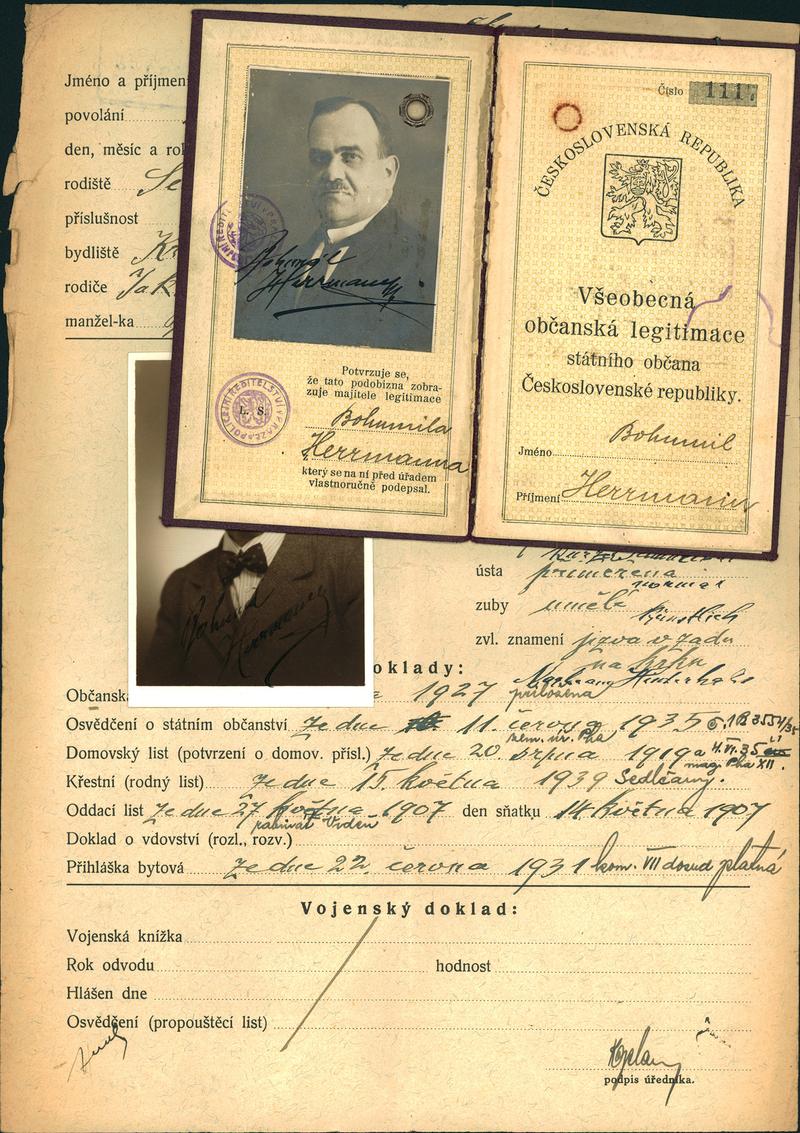 Jméno a příjmen
povolání
den, měsíc a rok
rodiště Se
příslušnost
bydliště Kr
rodiče Jak
manžel-ka
Bohumil
Herrmann
POLICEJNÍ ŘEDITELSTVÍ V PRAZE
L. S.
Potvrzuje se,
že tato podobizna zobra-
zuje majitele legitimace
Bohumila
Herrmanna
který se na ní před úřadem
vlastnoručně podepsal.
Číslo 111
ČESKOSLOVENSKÁ REPUBLIKA
Všeobecná
občanská legitimace
státního občana
Československé republiky.
Jméno Bohumil
Příjmení Herrmann
Bohumil
Herrmann
ústa přiměřená
normal
zuby umělé Künstlich
zvl. znamení jizva v zadu
na krku
oklady:
Občanská 1927 přiložena
Osvědčení o státním občanství ze dne 11. června 1935
Domovský list (potvrzení o domov. přísl.) ze dne 20. srpna 1919
Křestní (rodný list) ze dne 15. května 1939 Sedlčany.
Oddací list ze dne 27 května 1907 den sňatku 14 května 1907
rabinát
Doklad o vdovství (rozl., rozv.)
Přihláška bytová ze dne 22. června 1931 kom. VII dosud platná
Vojenský doklad:
Vojenská knížka
Rok odvodu hodnost
Hlášen dne
Osvědčení (propouštěcí list)
podpis úředníka.